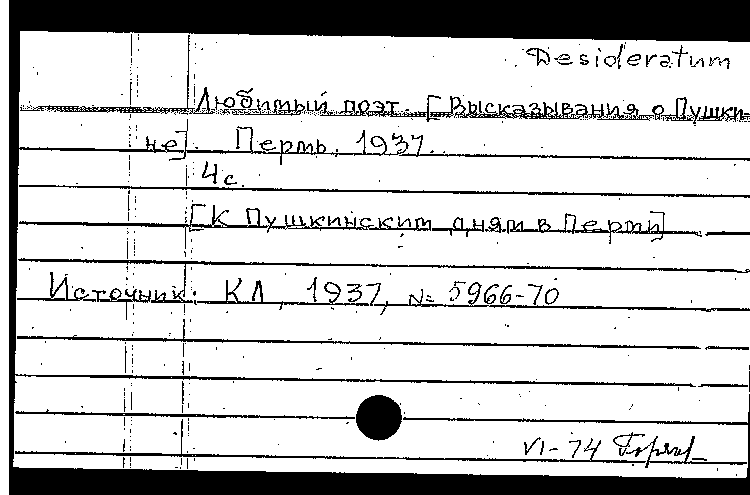 Desideratum
Любимый поэт. [Высказывания о Пушки-
не]. Пермь, 1937.
4 с.
[К Пушкинским дням в Перми]
Источник: КЛ, 1937, № 5966-70
VI-74